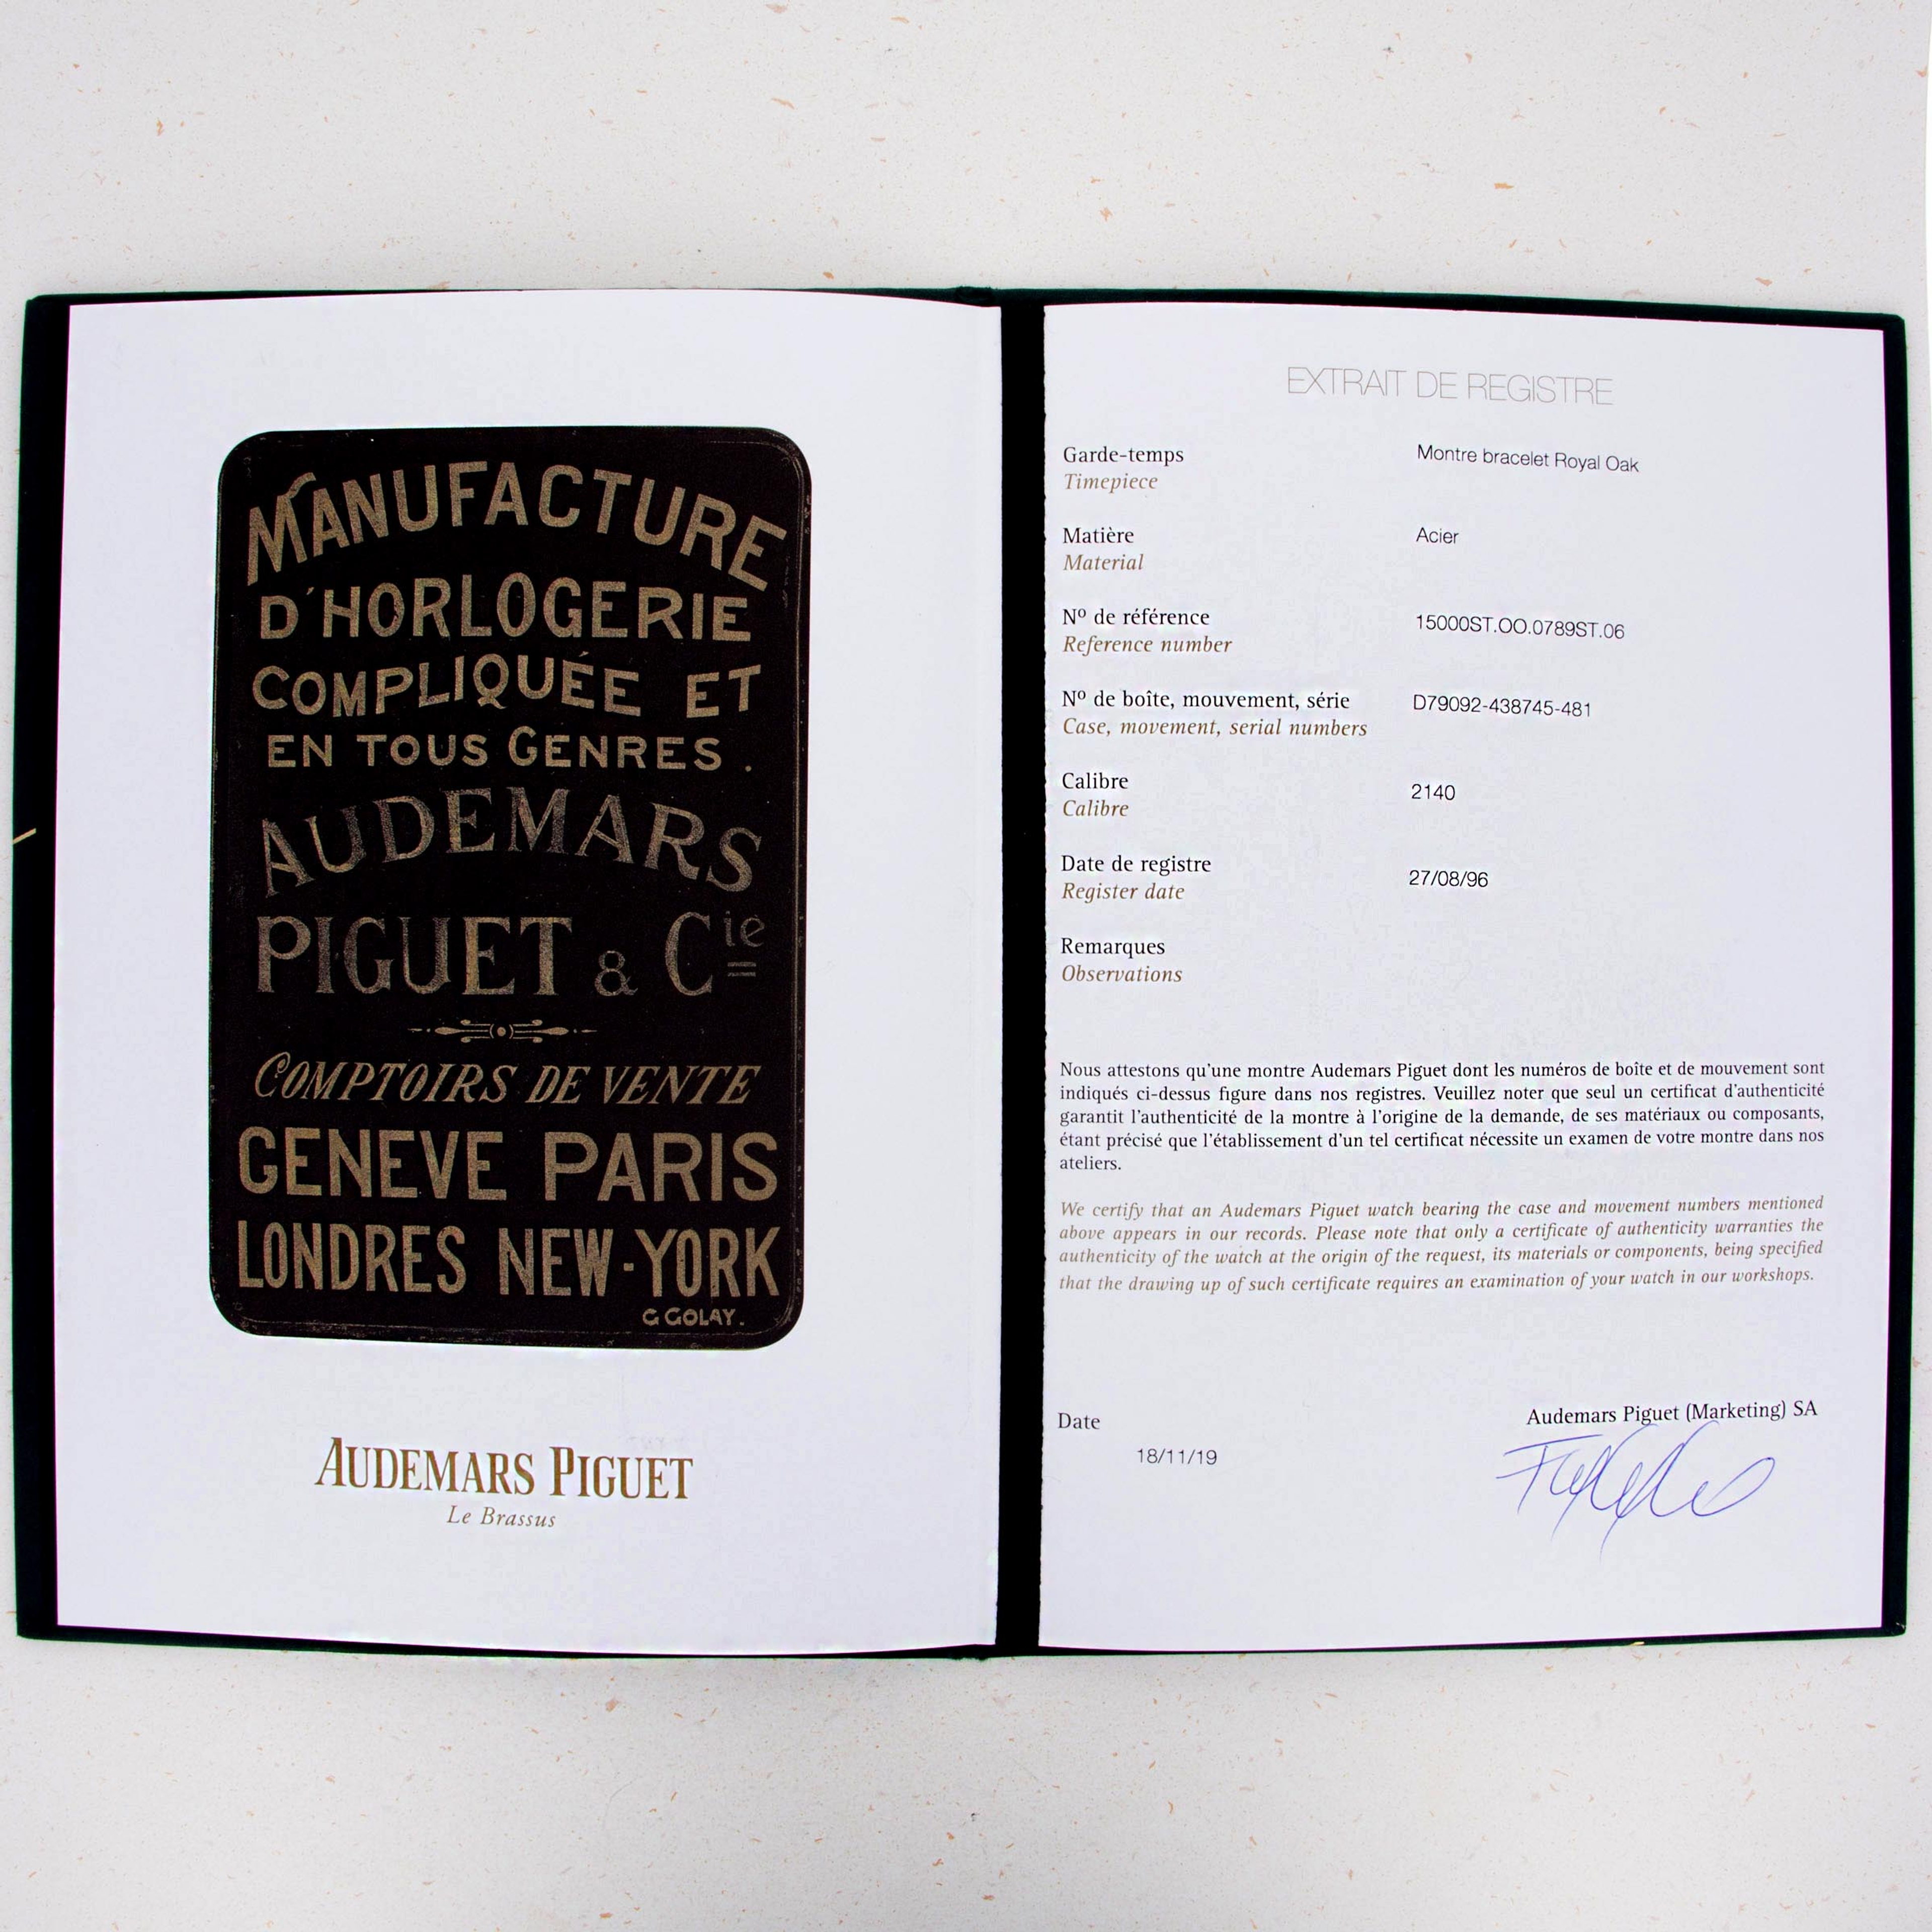 MANUFACTURE
D'HORLOGERIE
COMPLIQUÉE ET
EN TOUS GENRES.
AUDEMARS
PIGUET & Cie
COMPTOIRS DE VENTE
GENEVE PARIS
LONDRES NEW-YORK
G GOLAY.
AUDEMARS PIGUET
Le Brassus
EXTRAIT DE REGISTRE
Garde-temps Montre bracelet Royal Oak
Timepiece
Matière Acier
Material
Nº de référence 15000ST.OO.0789ST.06
Reference number
Nº de boîte, mouvement, série D79092-438745-481
Case, movement, serial numbers
Calibre 2140
Calibre
Date de registre 27/08/96
Register date
Remarques
Observations
Nous attestons qu'une montre Audemars Piguet dont les numéros de boîte et de mouvement sont
indiqués ci-dessus figure dans nos registres. Veuillez noter que seul un certificat d'authenticité
garantit l'authenticité de la montre à l'origine de la demande, de ses matériaux ou composants,
étant précisé que l'établissement d'un tel certificat nécessite un examen de votre montre dans nos
ateliers.
We certify that an Audemars Piguet watch bearing the case and movement numbers mentioned
above appears in our records. Please note that only a certificate of authenticity warranties the
authenticity of the watch at the origin of the request, its materials or components, being specified
that the drawing up of such certificate requires an examination of your watch in our workshops.
Date Audemars Piguet (Marketing) SA
18/11/19